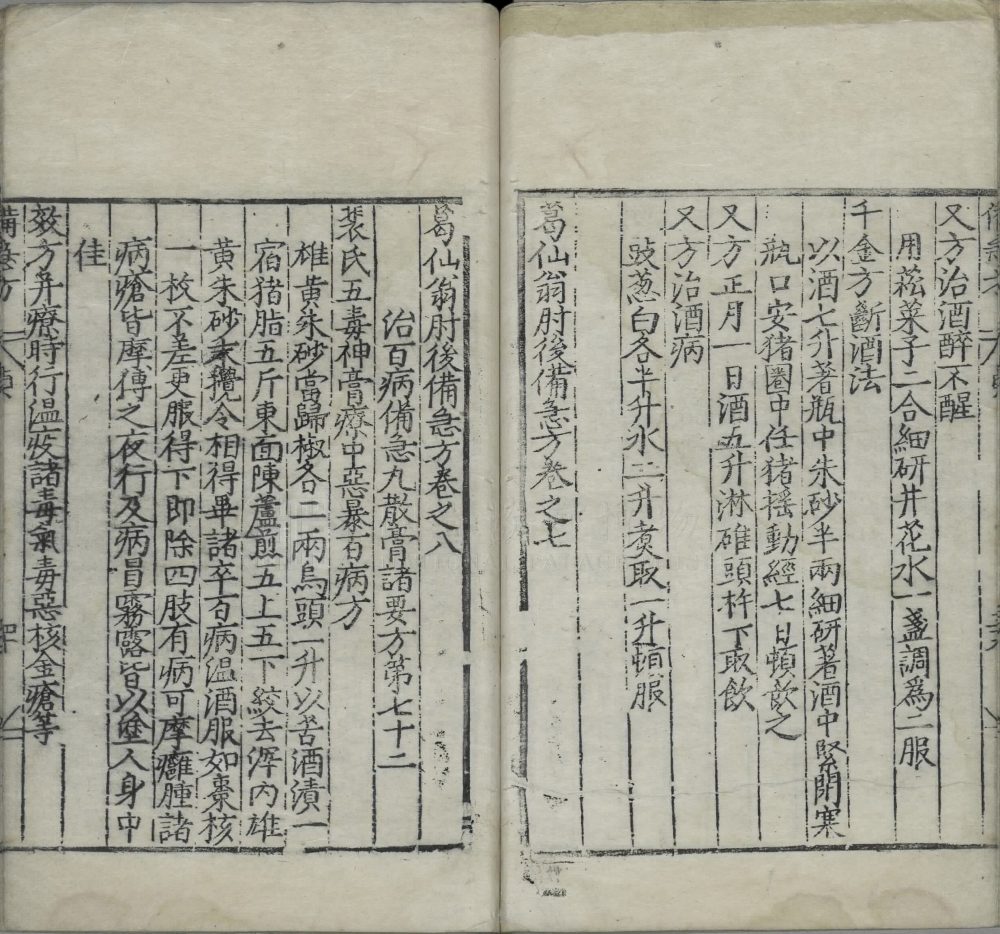 又方治酒醉不醒
用菘菜子二合細研井花水一盞調爲二服
千金方斷酒法
以酒七升著瓶中朱砂半兩細研著酒中緊閉塞
瓶口安猪圈中任猪摇動經七日頓飲之
又方正月一日酒五升淋碓頭杵下取飲
又方治酒病
豉葱白各半升水二升煑取一升頓服
葛仙翁肘後備急方卷之七
葛仙翁肘後備急方卷之八
治百病備急丸散膏諸要方第七十二
裴氏五毒神膏療中惡暴百病方
雄黄朱砂當歸椒各二兩烏頭一升以苦酒漬一
宿猪脂五斤東面陳蘆煎五上五下絞去滓内雄
黄朱砂末攪令相得畢諸卒百病温酒服如棗核
一枚不差更服得下即除四肢有病可摩癰腫諸
病瘡皆摩傅之夜行及病冒霧露皆以塗人身中
佳
效方并療時行温疫諸毒氣毒惡核金瘡等
備急方